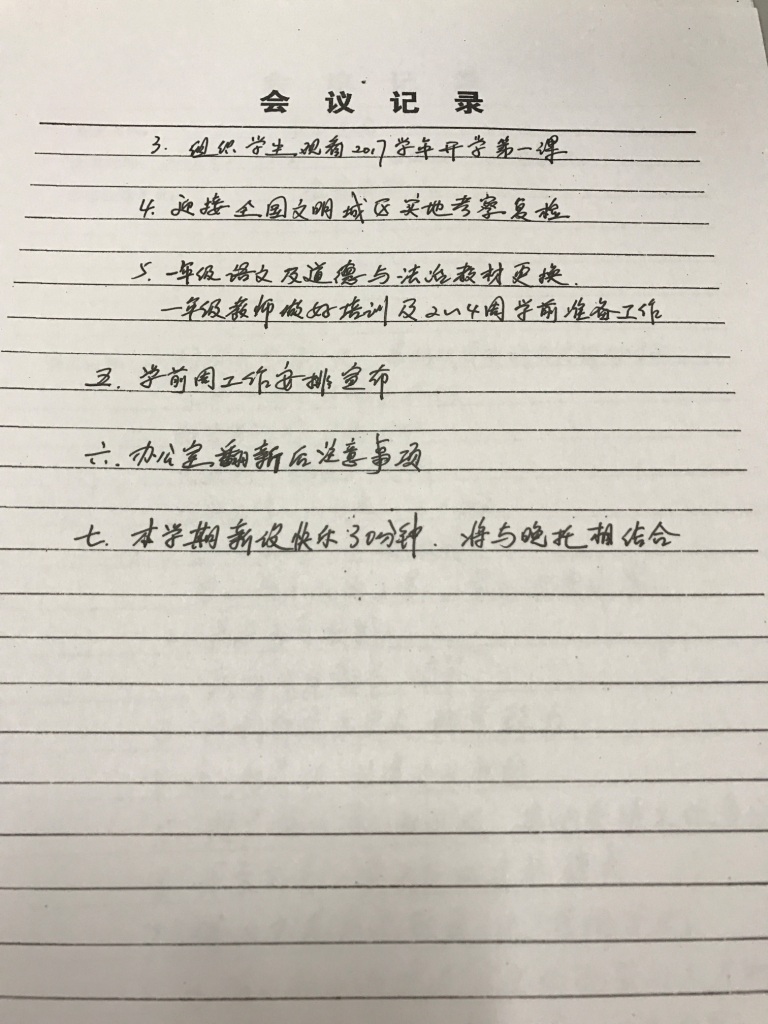 会议记录
3. 组织学生观看2017学年开学第一课
4. 迎接全国文明城区实地考察复检
5. 一年级语文及道德与法治教材更换.
一年级教师做好培训及2~4周学前准备工作
五. 学前周工作安排宣布
六. 办公室翻新后注意事项
七. 本学期新设快乐30分钟. 将与晚托相结合